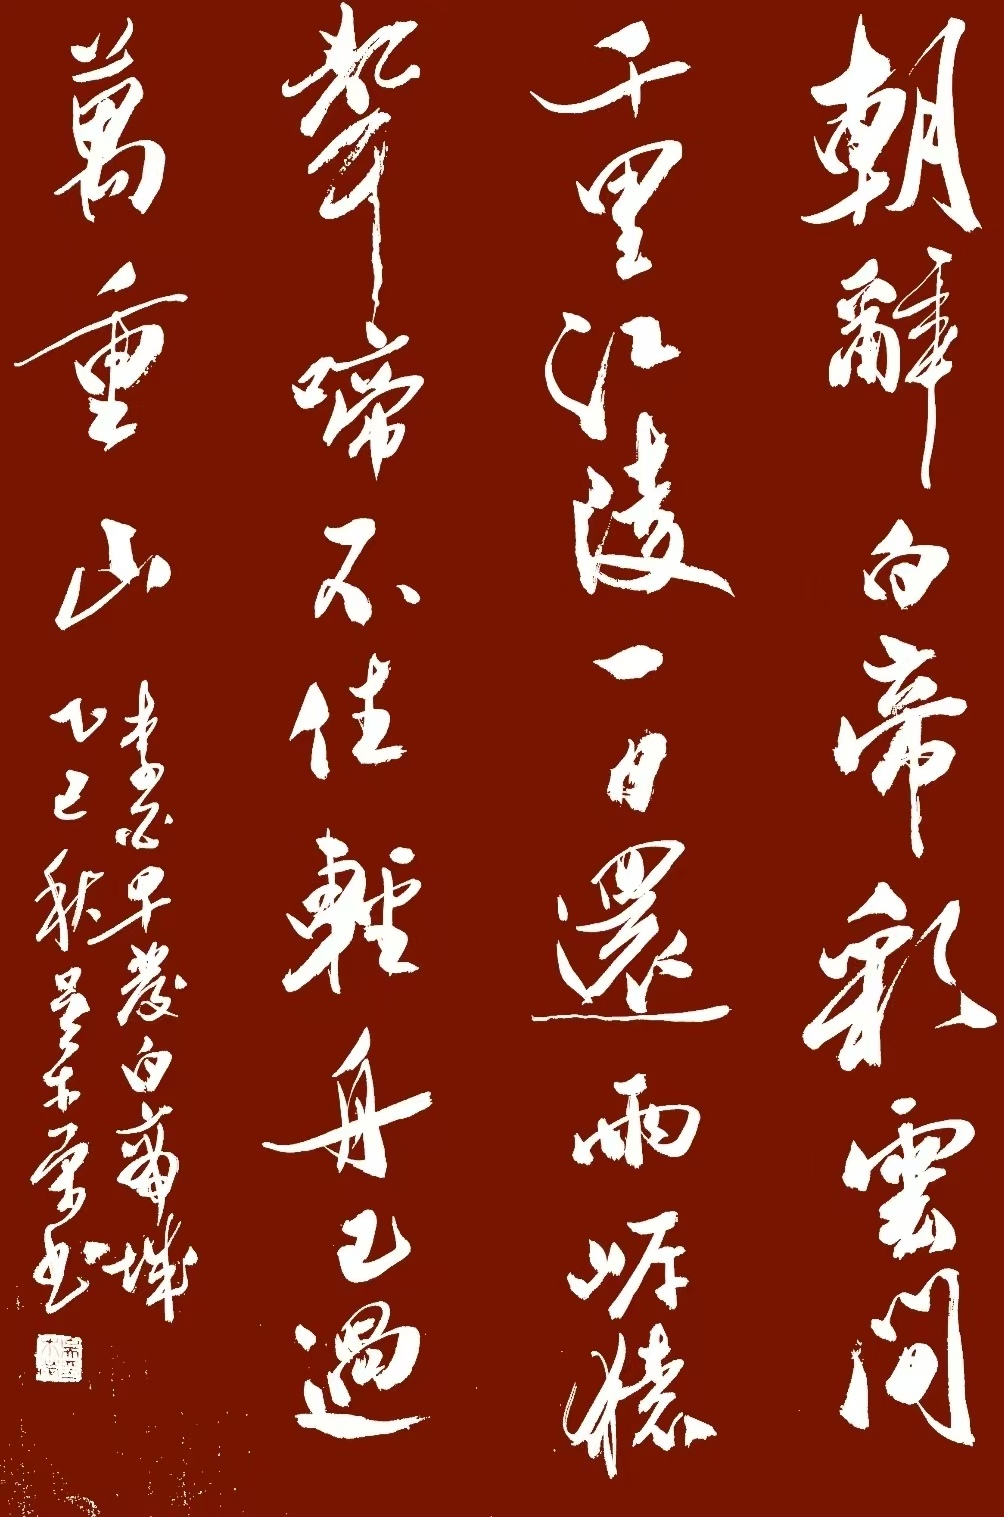 朝辭白帝彩雲間
千里江陵一日還兩岸猿
聲啼不住輕舟已過
萬重山
李白早發白帝城
乙巳秋吳木榮书